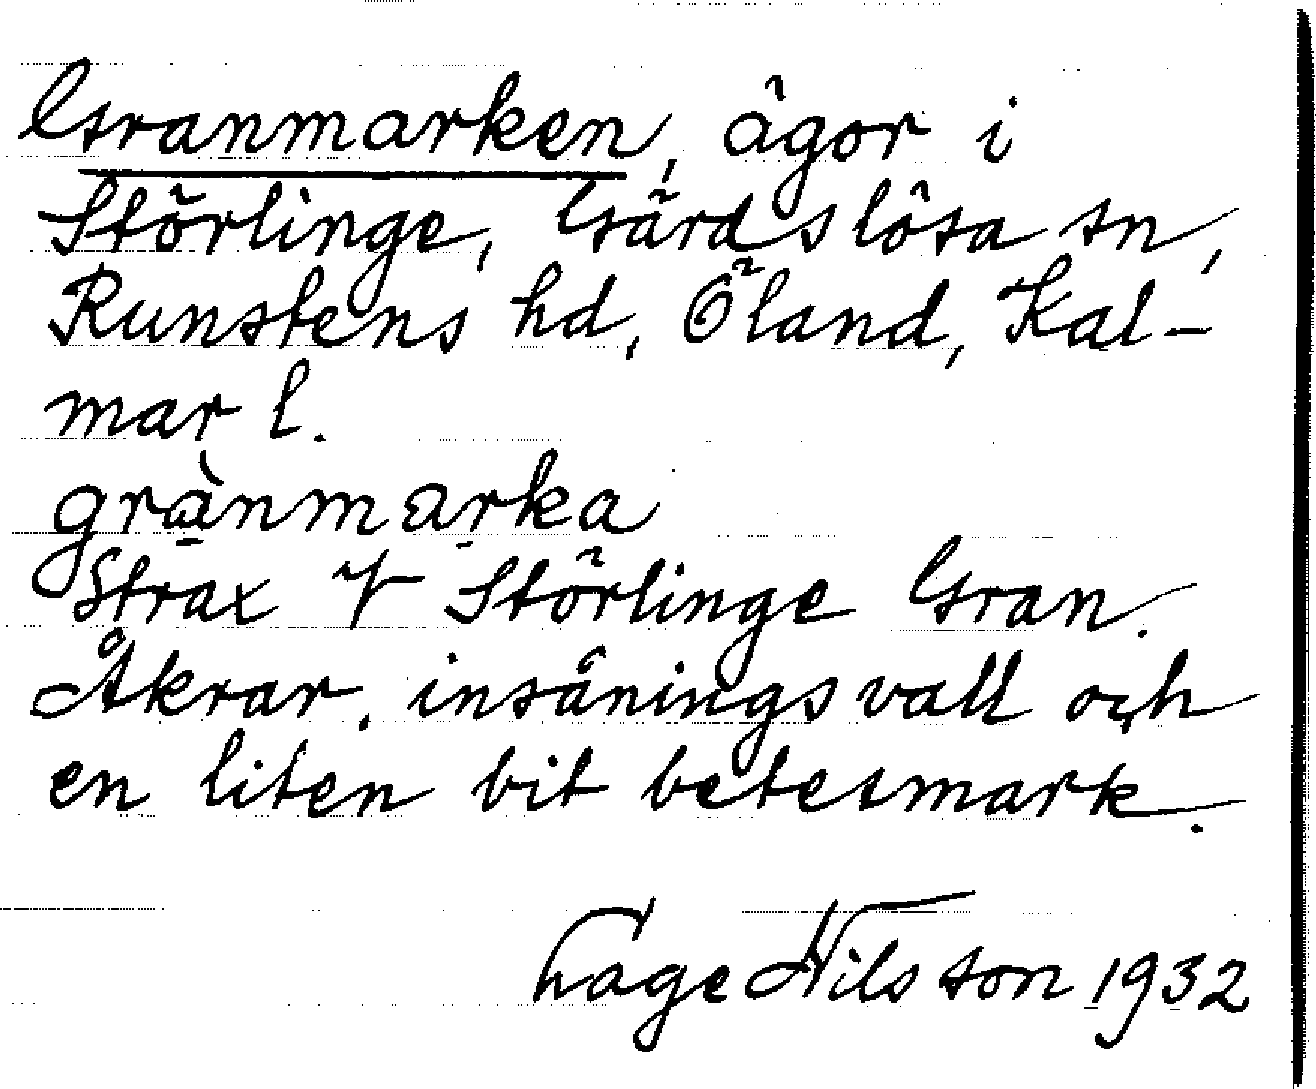 Granmarken, ägor i
Störlinge, Gärdslösa sn,
Runstens hd, Öland, Kal-
mar l.
grànmarka
Strax V Störlinge Gran.
Åkrar, insåningsvall och
en liten bit betesmark.
Tage Nilsson 1932